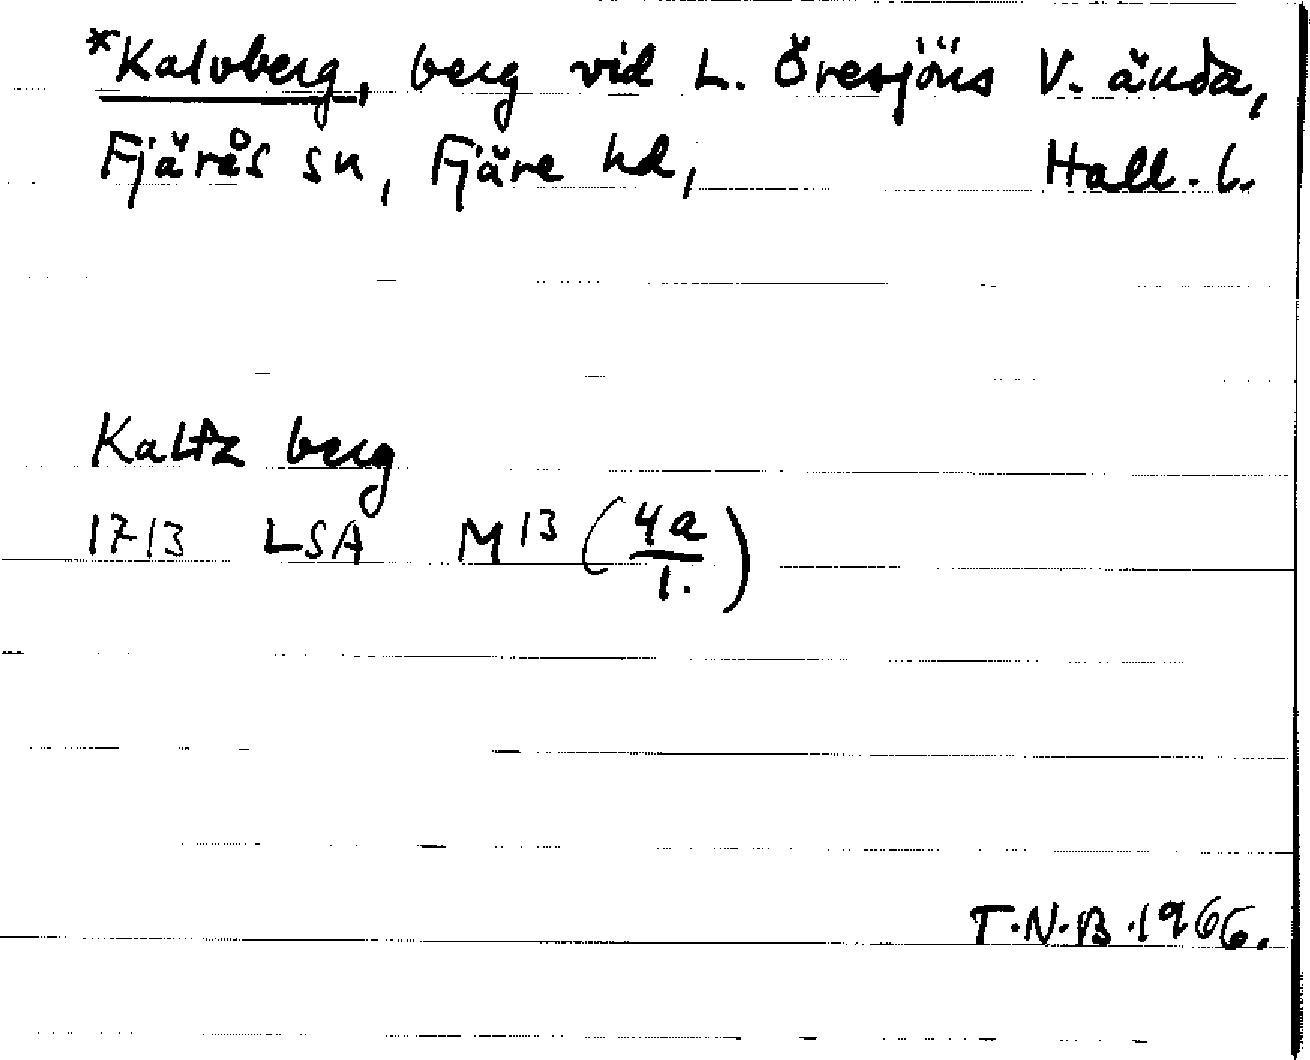 *Kalvberg, berg vid L. Öresjöns V. ända,
Fjärås sn, Fjäre hd, Hall. l.
Kaltz berg
1713 LSA M13 (4a/1.)
T.N.B. 1966.